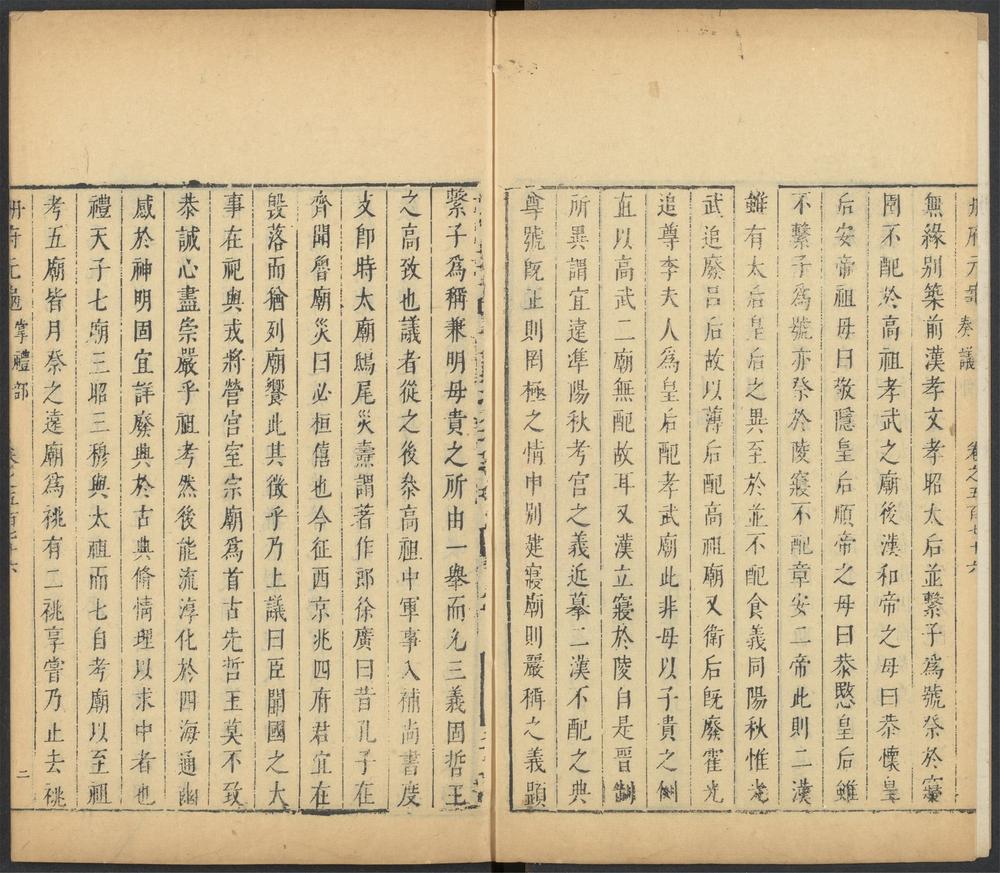 冊府元龜 奏議 卷之五百七十六
無緣別築前漢孝文孝昭太后並繫子爲號祭於寢
園不配於高祖孝武之廟後漢和帝之母曰恭懷皇
后安帝祖母曰敬隱皇后順帝之母曰恭愍皇后雖
不繫子爲號亦祭於陵寢不配章安二帝此則二漢
雖有太后皇后之異至於並不配食義同陽秋惟光
武追廢呂后故以薄后配高祖廟又衛后既廢霍光
追尊李夫人爲皇后配孝武廟此非母以子貴之例
直以高武二廟無配故耳又漢立寢於陵自是晉制
所異謂宜遠準陽秋考宮之義近摹二漢不配之典
尊號既正則罔極之情申別建寢廟則嚴稱之義顯
繫子爲稱兼明母貴之所由一舉而允三義固哲王
之高致也議者從之後叅高祖中軍事入補尚書度
支郎時太廟鴟尾災燾謂著作郎徐廣曰昔孔子在
齊聞魯廟災曰必桓僖也今征西京兆四府君宜在
毀落而猶列廟饗此其徵乎乃上議曰臣聞國之大
事在祀與戎將營宮室宗廟爲首古先哲王莫不致
恭誠心盡崇嚴乎祖考然後能流淳化於四海通幽
感於神明固宜詳廢興於古典脩情理以求中者也
禮天子七廟三昭三穆與太祖而七自考廟以至祖
考五廟皆月祭之遠廟爲祧有二祧享嘗乃止去祧
冊府元龜 掌禮部 卷之五百七十六 二